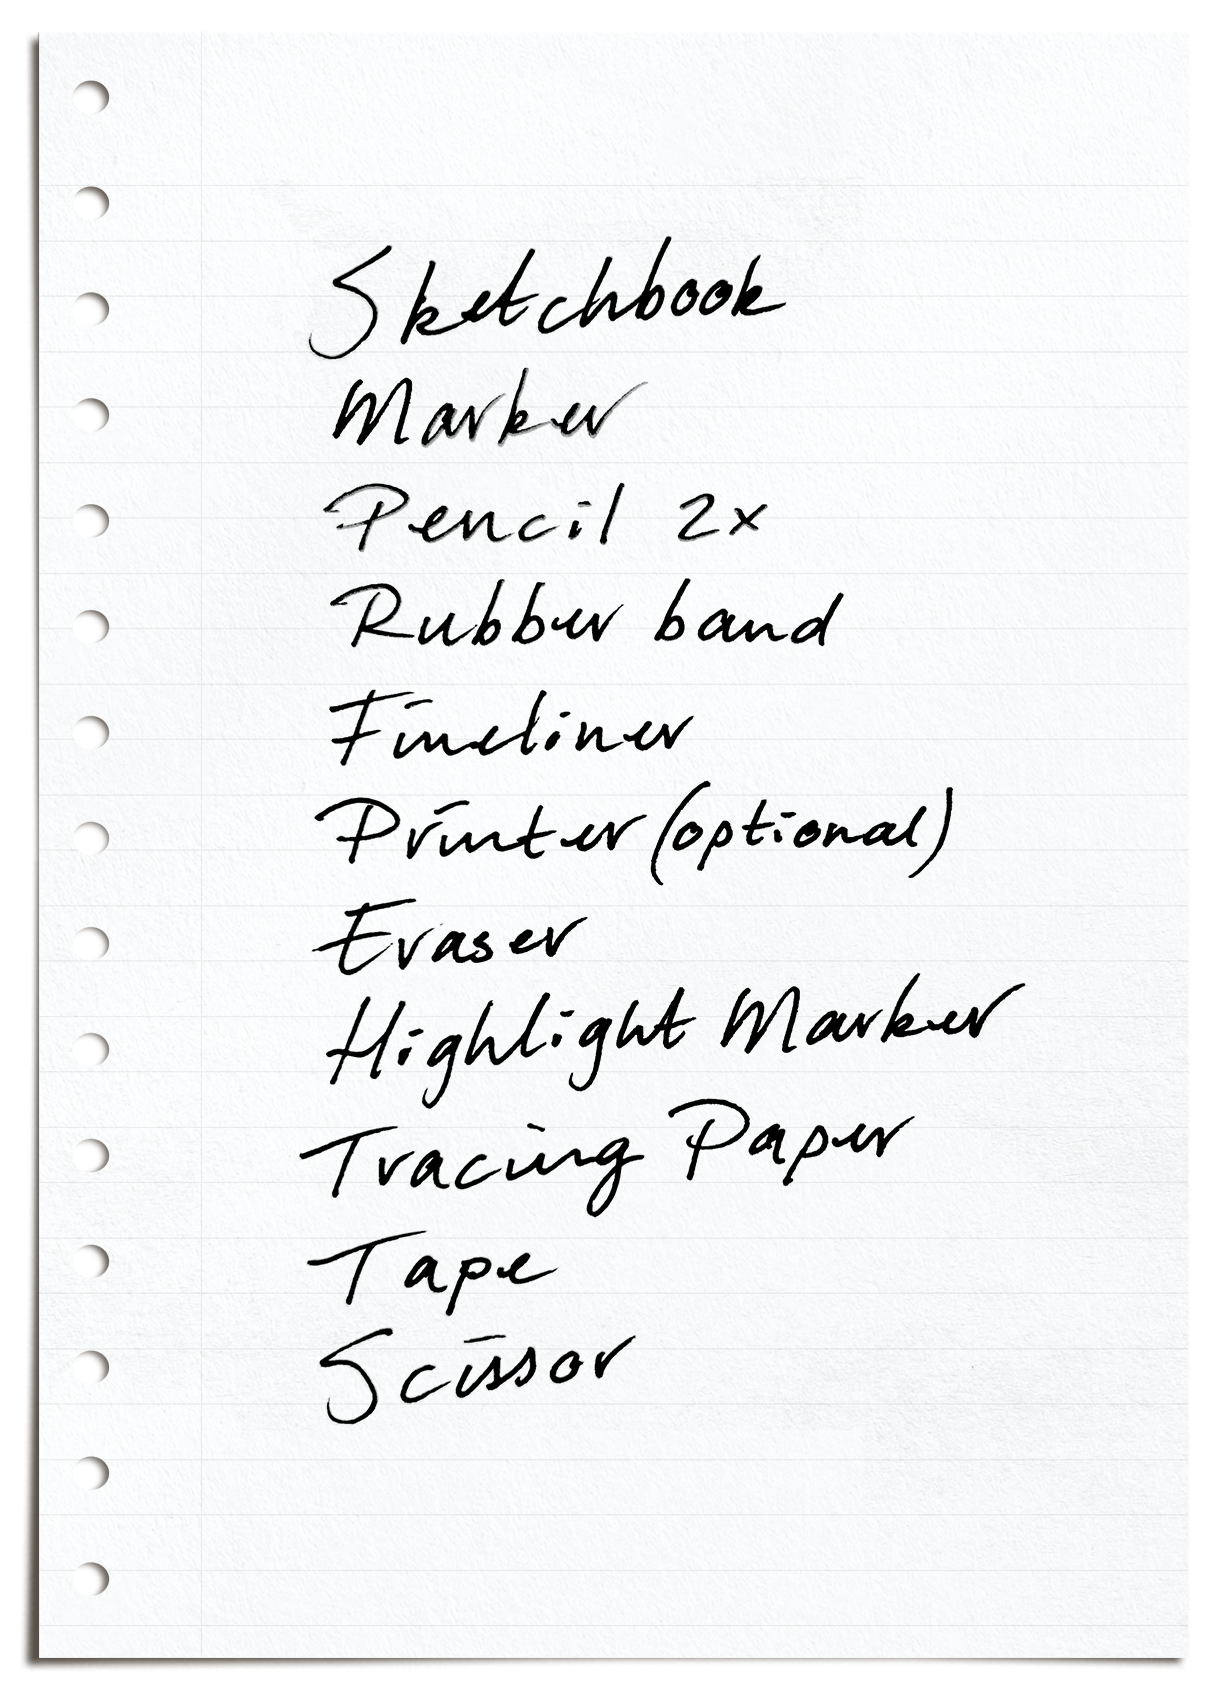 Sketchbook
Marker
Pencil 2x
Rubber band
Fineliner
Printer (optional)
Eraser
Highlight Marker
Tracing Paper
Tape
Scissor